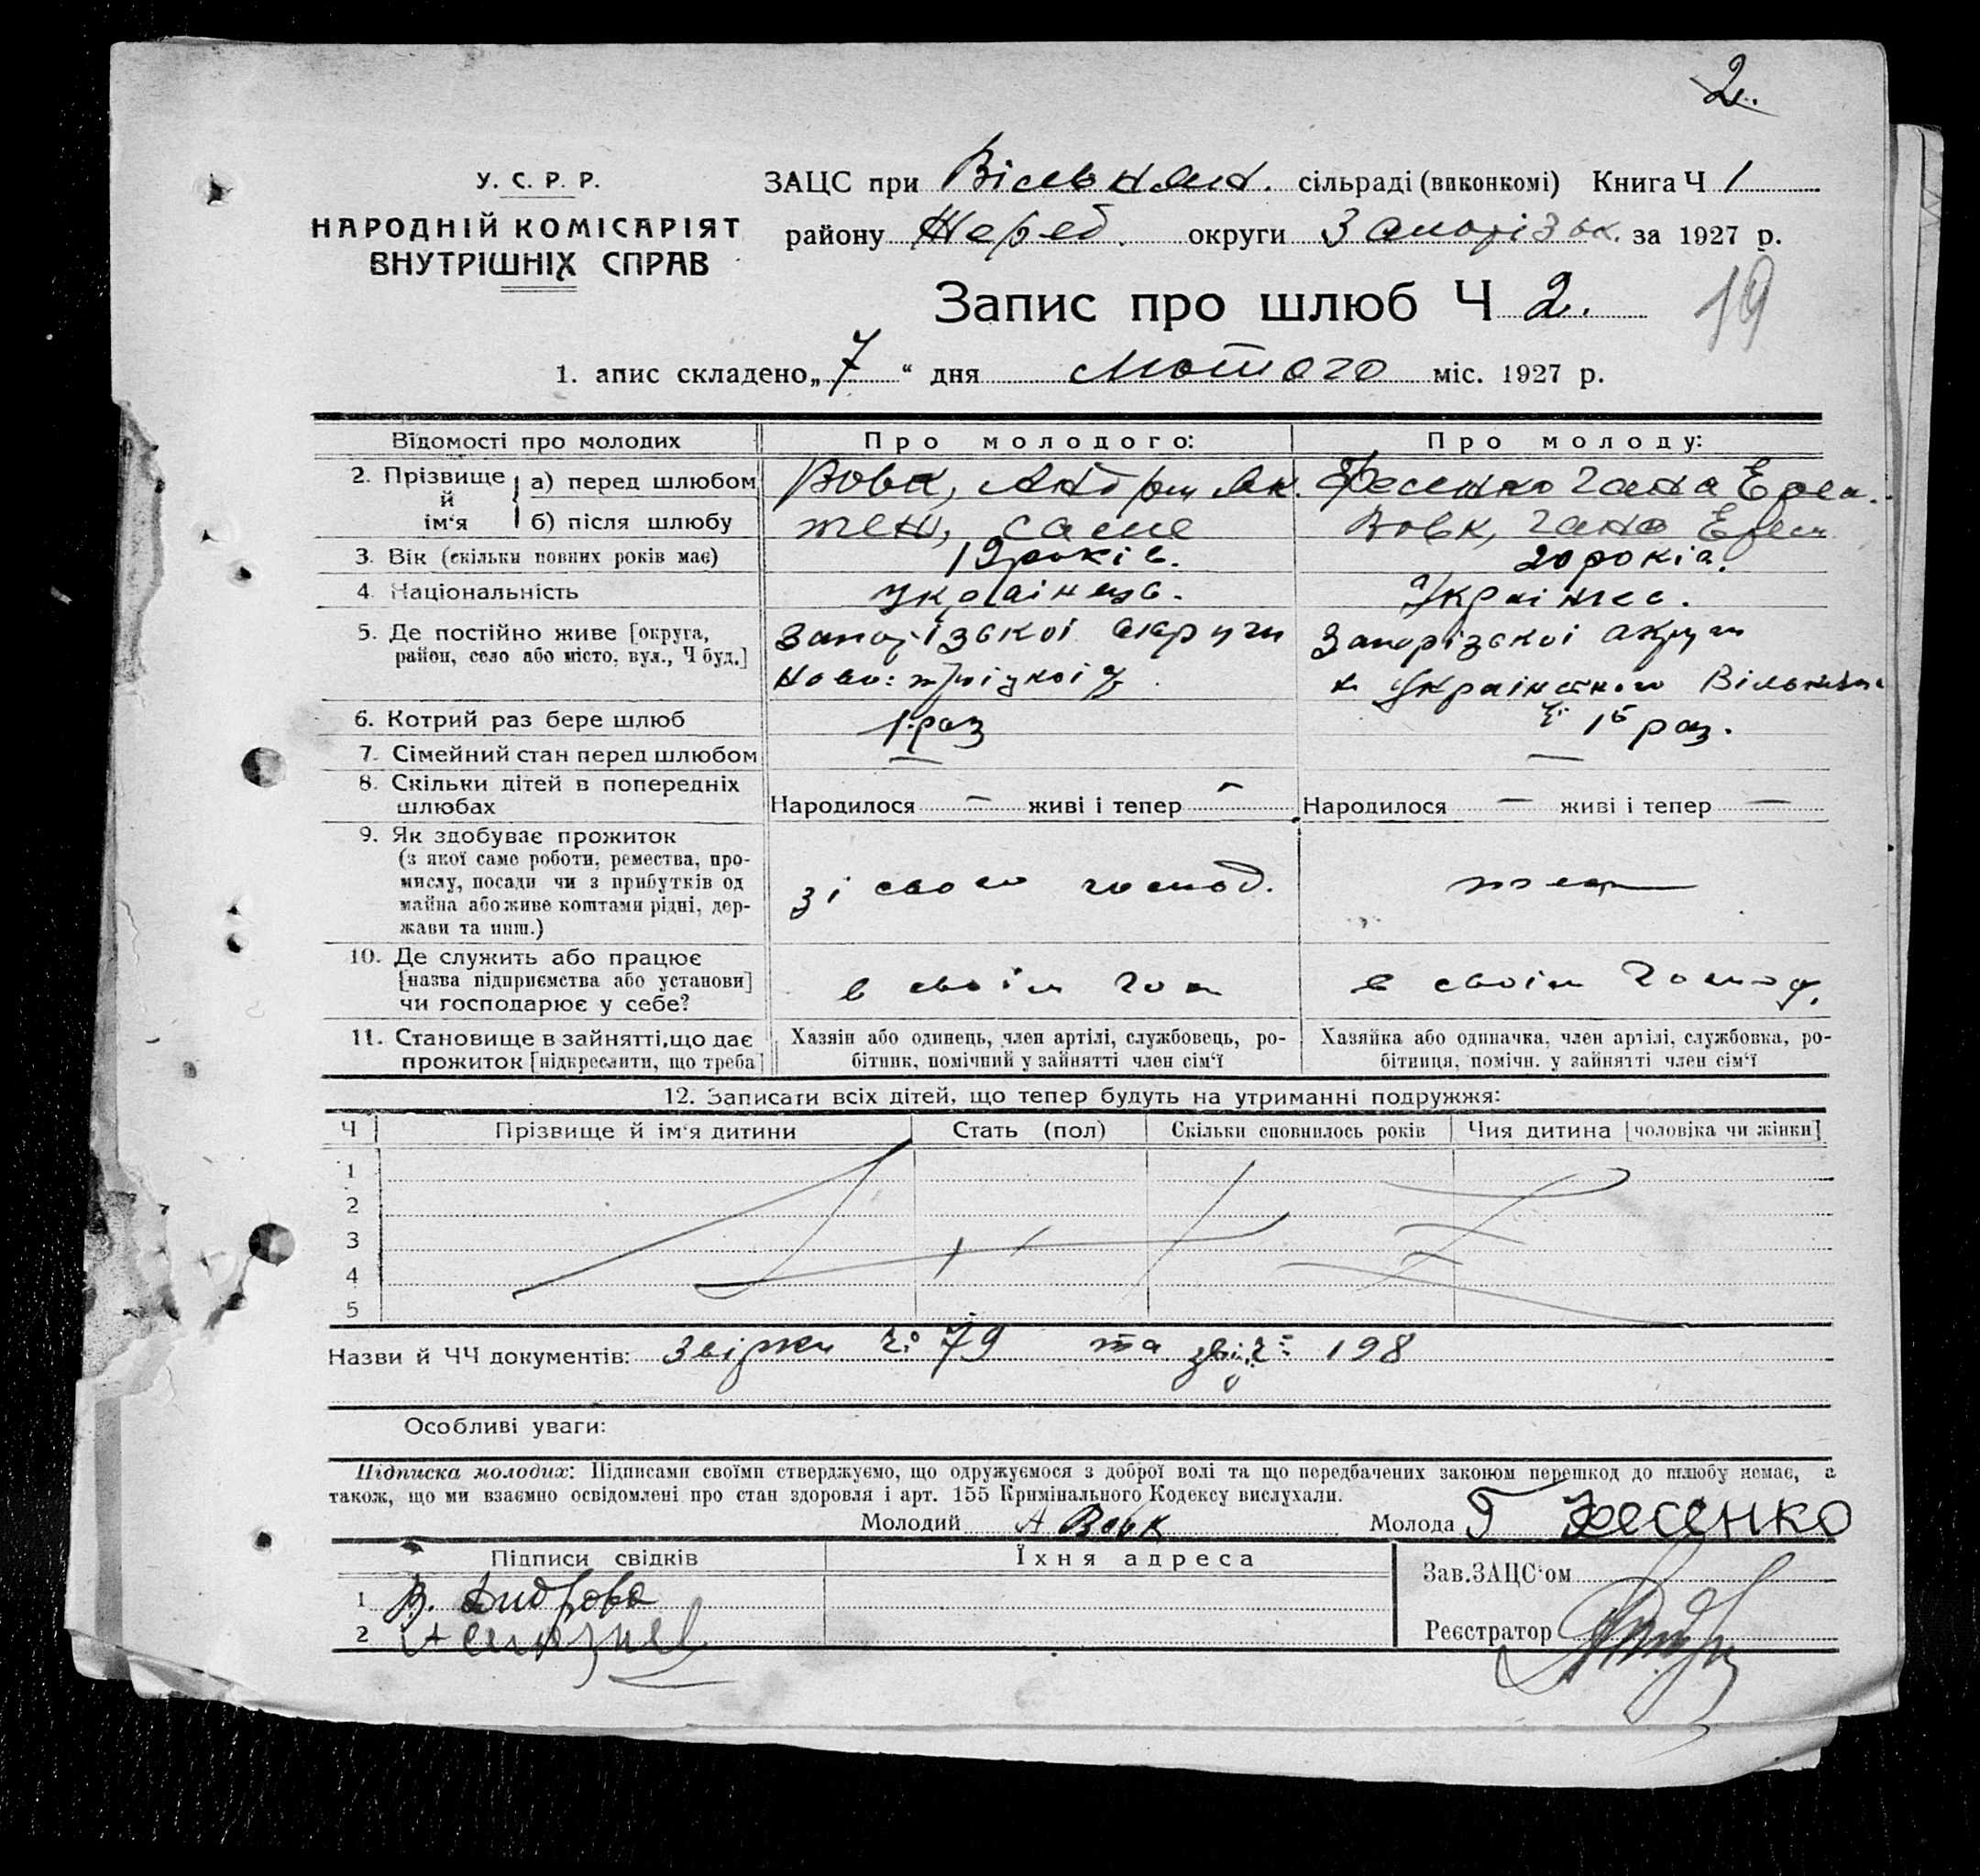 2.
У. С. Р. Р.
НАРОДНІЙ КОМІСАРІЯТ
ВНУТРІШНІХ СПРАВ
ЗАЦС при Вільнян. сільраді (виконкомі) Книга Ч 1
району Жереб. округи Запорізьк. за 1927 р.
Запис про шлюб Ч 2.
19
1. апис складено „7“ дня Лютого міс. 1927 р.
Відомості про молодих
Про молодого:
Про молоду:
2. Прізвище й ім'я
а) перед шлюбом
Вовк, Андрій Як.
Фесенко Гана Ерем.
б) після шлюбу
теж, саме
Вовк, Гана Ерем
3. Вік (скільки повних років має)
19 років.
20 років.
4. Національність
Українець.
Українка.
5. Де постійно живе [округа,
район, село або місто, вул., Ч буд.]
Запорізької округи
Ново-
Запорізької округи
6. Котрий раз бере шлюб
1 раз
1й раз.
7. Сімейний стан перед шлюбом
—
—
8. Скільки дітей в попередніх
шлюбах
Народилося — живі і тепер —
Народилося — живі і тепер —
9. Як здобуває прожиток
(з якої саме роботи, ремества, про-
мислу, посади чи з прибутків од
майна або живе коштами рідні, дер-
жави та инш.)
зі свого господ.
теж
10. Де служить або працює
[назва підприємства або установи]
чи господарює у себе?
в своїм гос
в своїм господ.
11. Становище в зайнятті, що дає
прожиток [підкреслити, що треба]
Хазяїн або одинець, член артілі, службовець, ро-
бітник, помічний у зайнятті член сім'ї
Хазяйка або одиначка, член артілі, службовка, ро-
бітниця, помічн. у зайнятті член сім'ї
12. Записати всіх дітей, що тепер будуть на утриманні подружжя:
Ч
Прізвище й ім'я дитини
Стать (пол)
Скільки сповнилось років
Чия дитина [чоловіка чи жінки]
1
2
3
4
5
Назви й ЧЧ документів: Звірки ч. 79 та 198
Особливі уваги:
Підписка молодих: Підписами своїми стверджуємо, що одружуємося з доброї волі та що передбачених законом перешкод до шлюбу немає, а
також, що ми взаємно освідомлені про стан здоровля і арт. 155 Кримінального Кодексу вислухали.
Молодий А Вовк
Молода Г Фесенко
Підписи свідків
Їхня адреса
Зав. ЗАЦС'ом
1 В.
2
Реєстратор